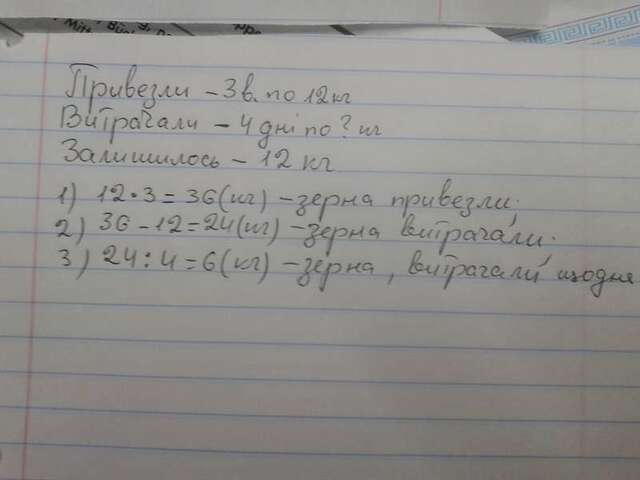 Привезли – 3 в. по 12 кг
Витрачали – 4 дні по ? кг
Залишилось – 12 кг
1) 12 · 3 = 36 (кг) – зерна привезли;
2) 36 – 12 = 24 (кг) – зерна витрачали.
3) 24 : 4 = 6 (кг) – зерна, витрачали щодня